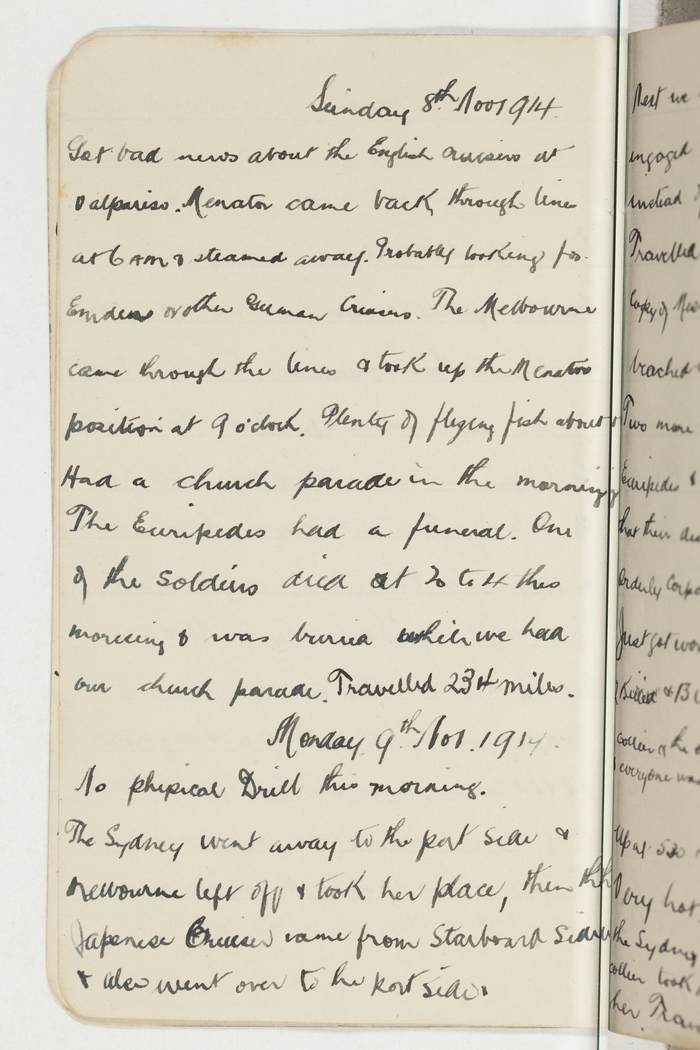 Sunday 8th Nov 1914.
Got bad news about the English cruisers at
Valpariso. Menator came back through lines
at 6 AM & steamed away. Probably looking for
Emden or other German Cruisers. The Melbourne
came through the lines & took up the Menators
position at 9 o'clock. Plenty of flying fish about
Had a church parade in the morning
The Euripedes had a funeral. One
of the Soldiers died at 20 to 4 this
morning & was buried while we had
our church parade. Travelled 234 miles.
Monday 9th Nov. 1914.
No phipical Drill this morning.
The Sydney went away to the port side &
Melbourne left off & took her place, then the
Japenese Cruiser came from Starboard Side
& also went over to the port side.
Next we
engaged
instead
Travelled
Copy of
beached
Two more
Euripedes &
that their
Orderly Corpo
Just got wor
Killed &
collier of the
everyone was
Up at 530
Very hot
the Sydney
collier took
her Trav